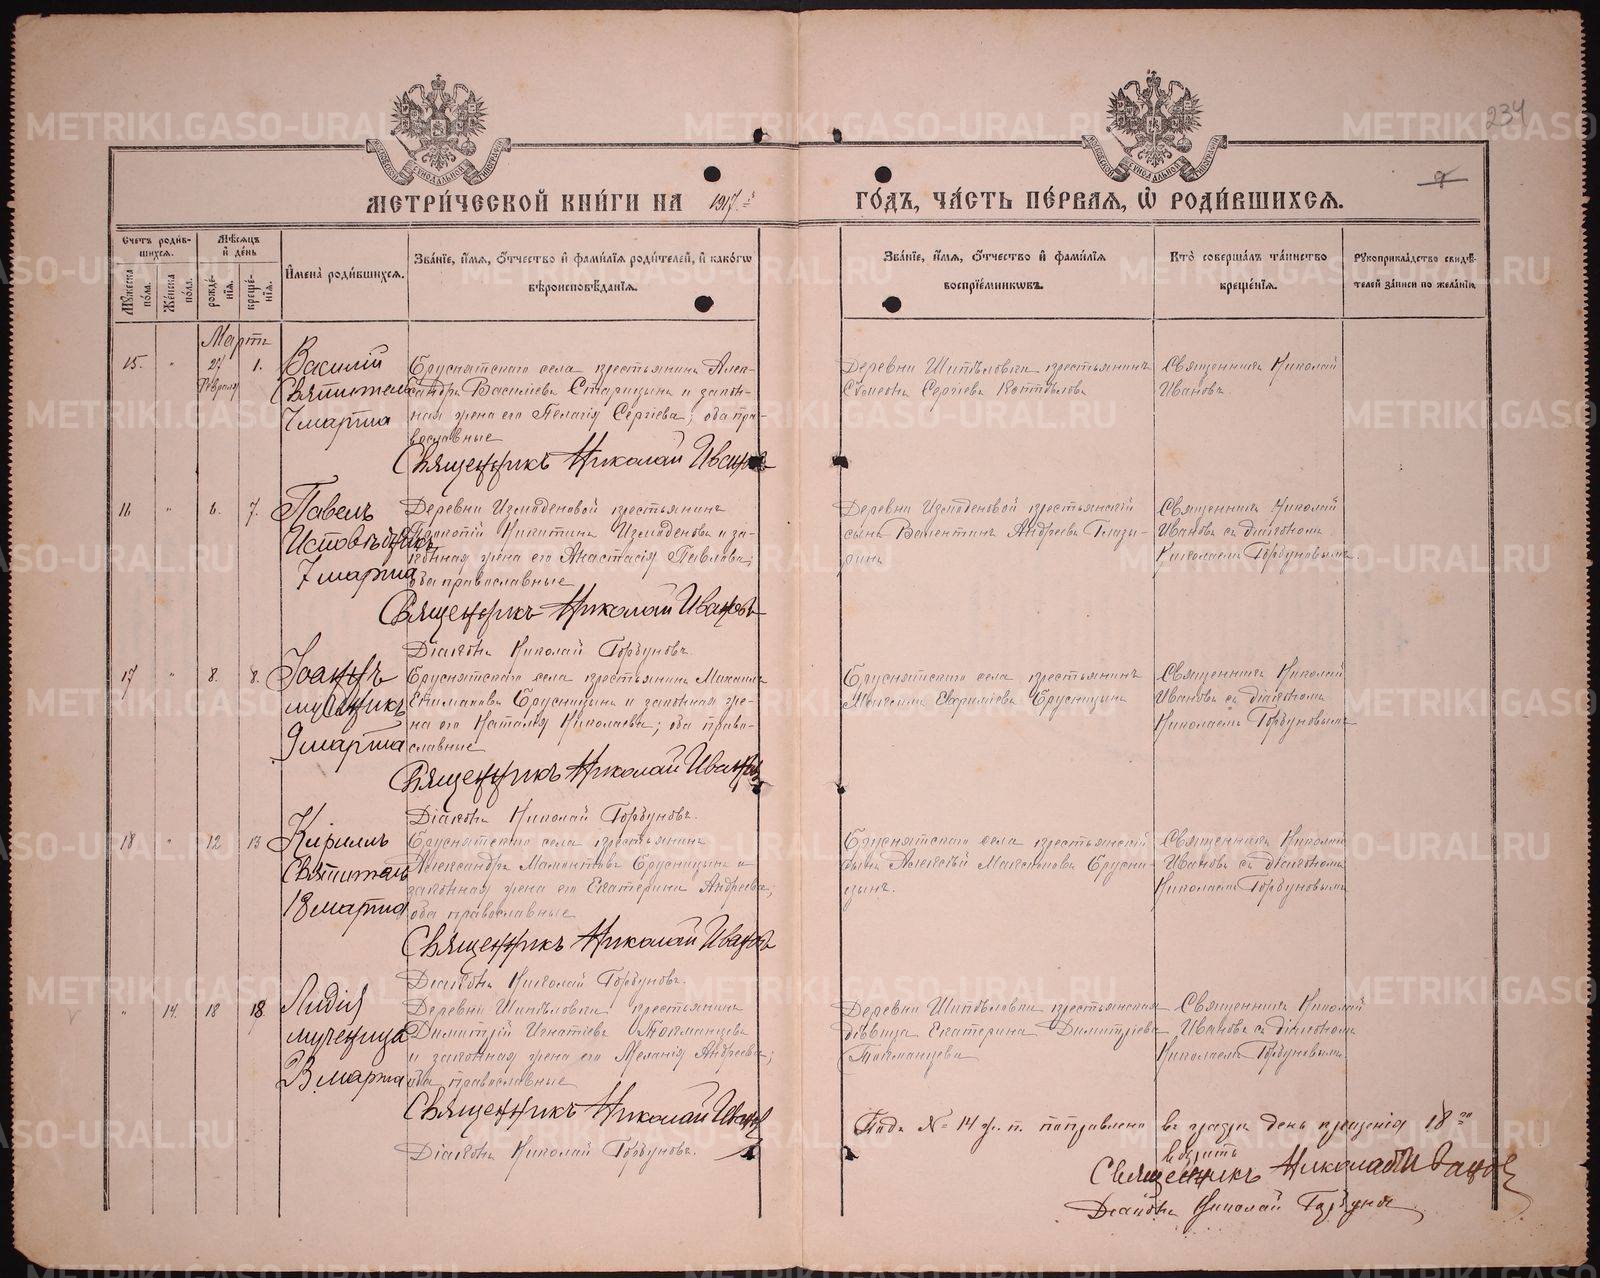 234
МЕТРИ́ЧЕСКОЙ КНИ́ГИ НА 1917й ГО́ДЪ, ЧА́СТЬ ПЕ́РВАЯ, Ѡ РОДИ́ВШИХСЯ.
Счетъ родив-
шихся.
Мѣсяцъ
и день
Мꙋжеска пола.
Женска пола.
рожде-
нїя.
креще-
нїя.
Имена родившихся.
Званїе, имя, отчество и фамилїя родителей, и какогѡ
вѣроисповѣданїя.
Званїе, имя, отчество и фамилїя
воспрїемникѡвъ.
Кто совершалъ таинство
крещенїя.
Рꙋкоприкладство свидѣ-
телей записи по желанїю
Мартъ
15. " 27 Февраля 1.
Василій
Святитель
7 марта
Бруснятскаго села крестьянинъ Алек-
сандръ Василіевъ Старицынъ и закон-
ная жена его Пелагія Сергіева; оба пра-
вославные
Священникъ Николай Ивановъ
Деревни Шипѣловки крестьянинъ
Сѵмеонъ Сергіевъ
Священникъ Николай
Ивановъ.
16. " 6. 7.
Павелъ
Исповѣдникъ
7 марта
Деревни Измоденовой крестьянинъ
Прокопій Никитинъ Измоденовъ и за-
конная жена его Анастасія Павлова;
оба православные
Священникъ Николай Ивановъ
Діаконъ Николай Горбуновъ.
Деревни Измоденовой крестьянскій
сынъ Валентинъ Андреевъ Глазы-
ринъ
Священникъ Николай
Ивановъ съ діакономъ
Николаемъ Горбуновымъ.
17 " 8. 8.
Іоаннъ
мученикъ
9 марта
Бруснятскаго села крестьянинъ Михаилъ
Брусницынъ и законная же-
на его Наталія Николаева; оба право-
славные
Священникъ Николай Ивановъ
Діаконъ Николай Горбуновъ.
Бруснятскаго села крестьянинъ
Максимъ Ефриміевъ Брусницынъ
Священникъ Николай
Ивановъ съ діакономъ
Николаемъ Горбуновымъ
18 " 12 13
Кириллъ
Святитель
18 марта
Бруснятскаго села крестьянинъ
Александръ Мамонтовъ Брусницынъ и
законная жена его Екатерина Андреева;
оба православные
Священникъ Николай Ивановъ
Діаконъ Николай Горбуновъ.
Бруснятскаго села крестьянскій
сынъ Алексѣй Максимовъ Брусни-
цынъ.
Священникъ Николай
Ивановъ съ діакономъ
Николаемъ Горбуновымъ
" 14. 18 18
Лидія
мученица
23 марта
Деревни Шипѣловки крестьянинъ
Димитрій Игнатіевъ Токманцевъ
и законная жена его Меланія Андреева;
оба православные
Священникъ Николай Ивановъ
Діаконъ Николай Горбуновъ.
Деревни Шипѣловки крестьянская
дѣвица Екатерина Димитріева
Токманцева
Священникъ Николай
Ивановъ съ діакономъ
Николаемъ Горбуновымъ
Подъ № 14 ж. п. поправлено въ графѣ день крещенія 18го
вѣрить
Священникъ Николай Ивановъ
Діаконъ Николай Горбуновъ
METRIKI.GASO-URAL.RU